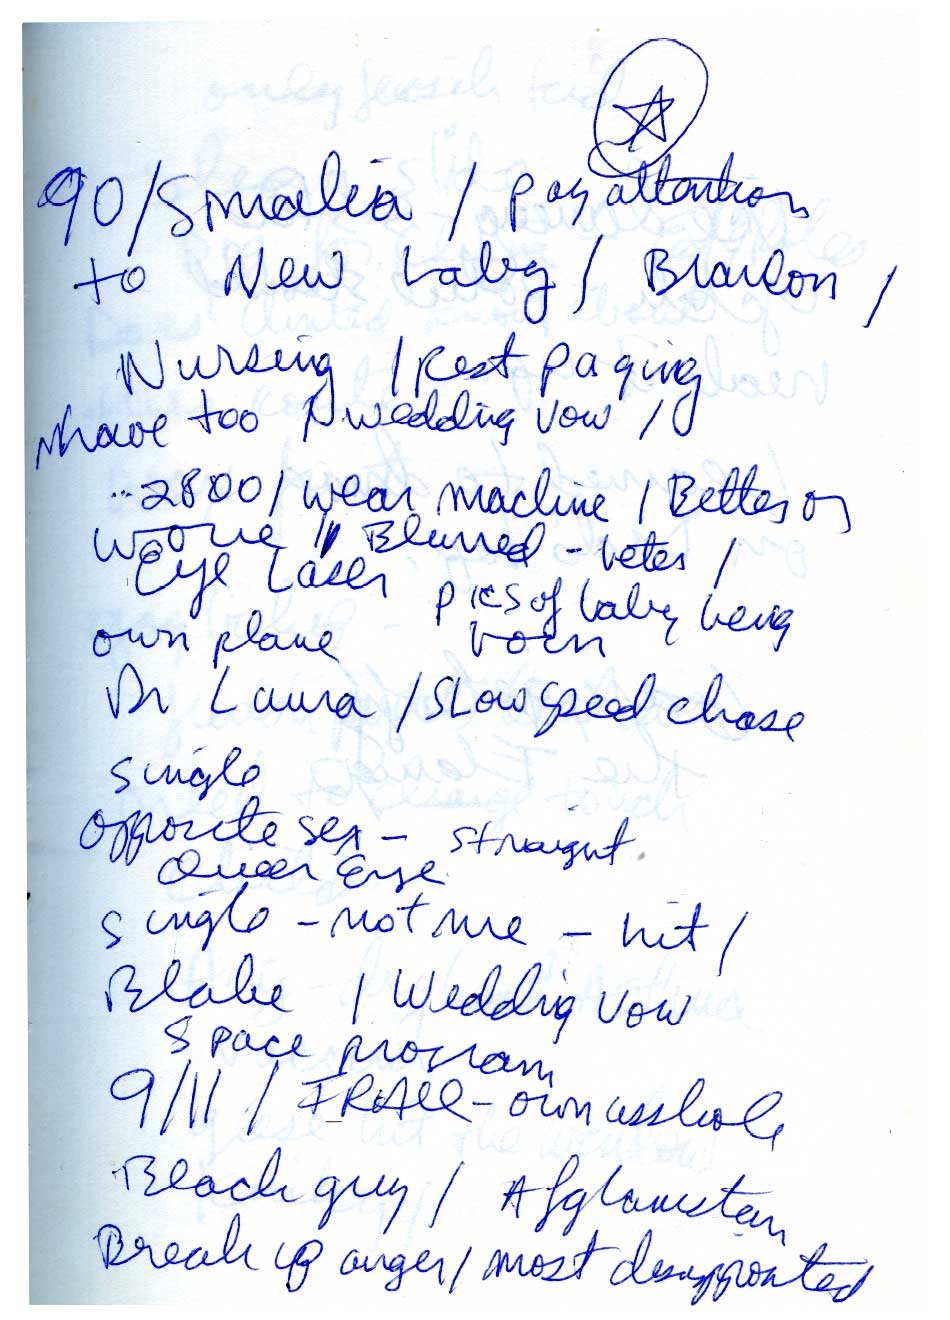 90/Somalia / pay attention
to New baby / Brandon /
Nursing / Rest paging
have too wedding vow /
2800 / wear machine / Better or
worse // Blurred - betes /
Eye Laser
pics of baby being
own plane born
Dr Laura / Slow speed chase
single
opposite sex - straight.
Queer Eye
single - not me - hit /
Blake / Wedding vow
space program
9/11 / - own asshole
Black guy / Afghanistan
Break up anger / most disappointed